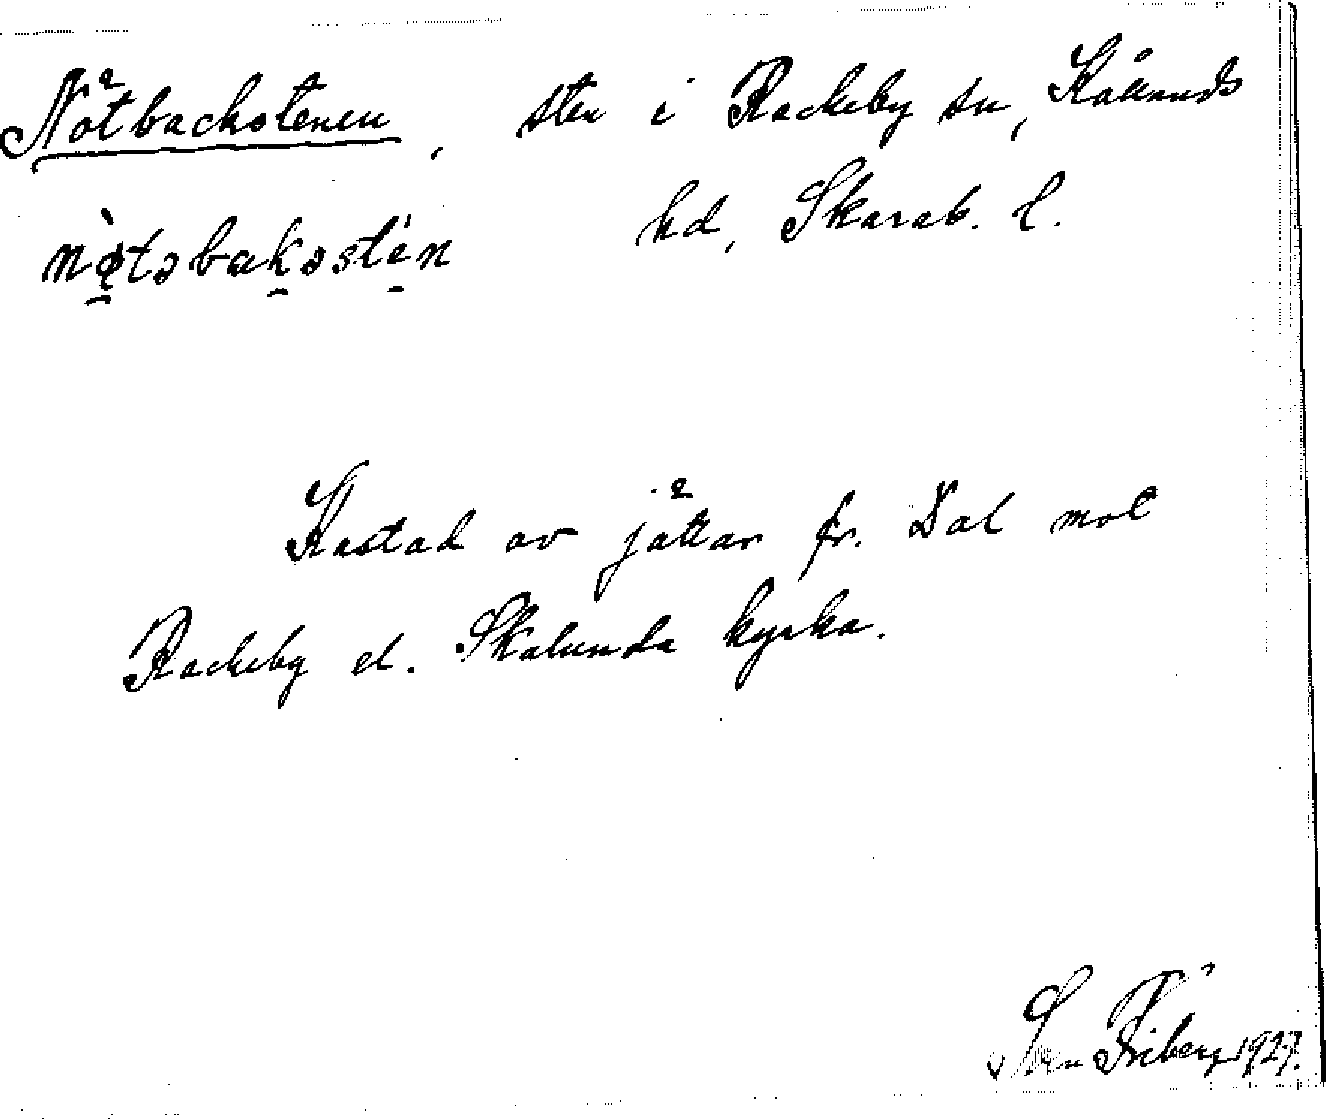 Nötbackstenen, sten i Rackeby sn, Kållands
hd, Skarab. l.
nø̀təbakəstén
Kastad av jättar fr. Dal mot
Rackeby el. Skalunda kyrka.
Sven Friberg 1927.